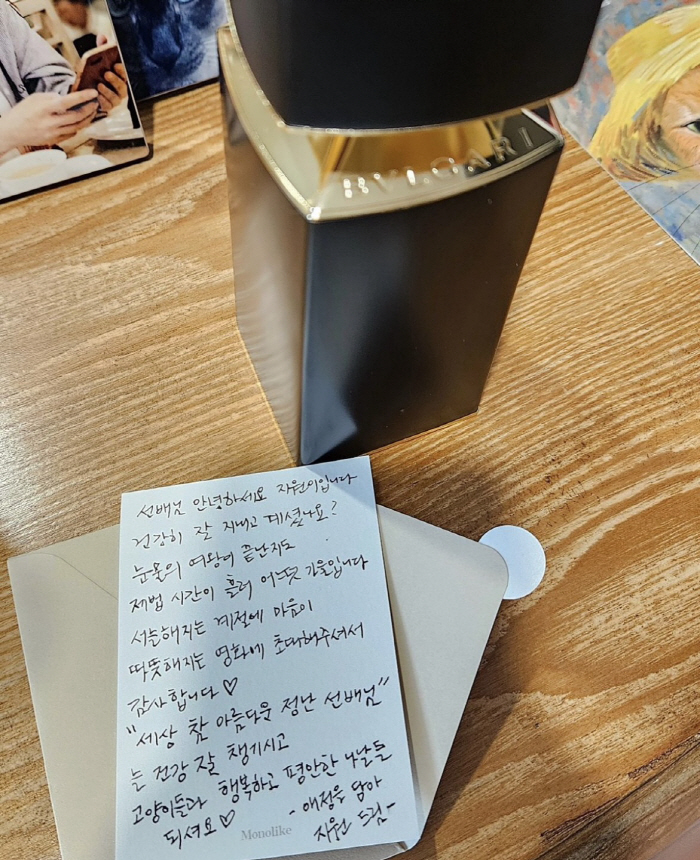 BVLGARI
선배님 안녕하세요 지원이입니다
건강히 잘 지내고 계셨나요?
눈물의 여왕이 끝난지도
제법 시간이 흘러 어느덧 가을입니다
서늘해지는 계절에 마음이
따뜻해지는 영화에 초대해주셔서
감사합니다♡
"세상 참 아름다운 정난 선배님"
늘 건강 잘 챙기시고
고양이들과 행복하고 평안한 나날들
되셔요♡ - 애정을 담아
지원 드림-
Monolike